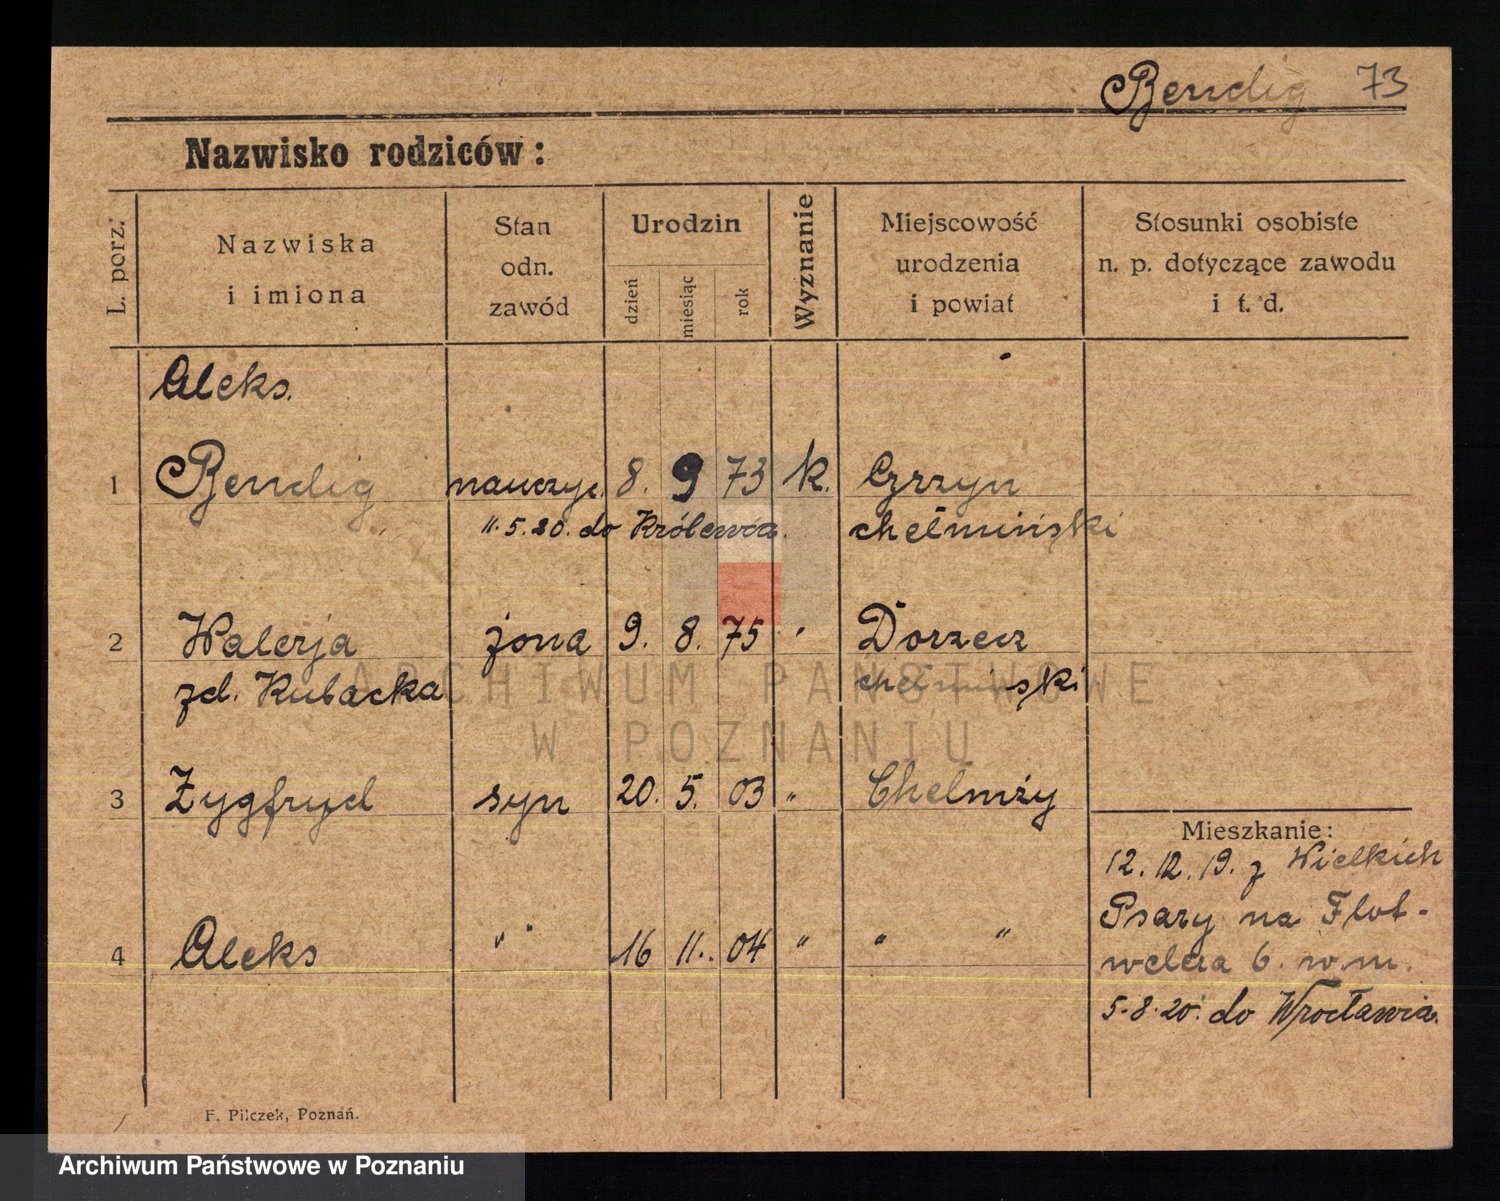 Bendig 73
Nazwisko rodziców:
L. porz. Nazwiska i imiona Stan odn. zawód Urodzin dzień miesiąc rok Wyznanie Miejscowość urodzenia i powiat Stosunki osobiste n. p. dotyczące zawodu i t. d.
Aleks.
1 Bendig nauczyc. 8. 9 73 k. Czrzyn
11.5.20. do Królewca. chełmiński
2 Walerja żona 9. 8. 75 " Dorzecz
zd. Kubacka chełmiński
3 Zygfryd syn 20. 5. 03 " Chelmży
Mieszkanie:
12.12.19. z Wielkich
Psary na Flot-
4 Aleks " " 16 11. 04 " " "
welera 6. w.m.
5.8.20. do Wrocławia.
F. Pilczek, Poznań.
ARCHIWUM PAŃSTWOWE
W POZNANIU
Archiwum Państwowe w Poznaniu